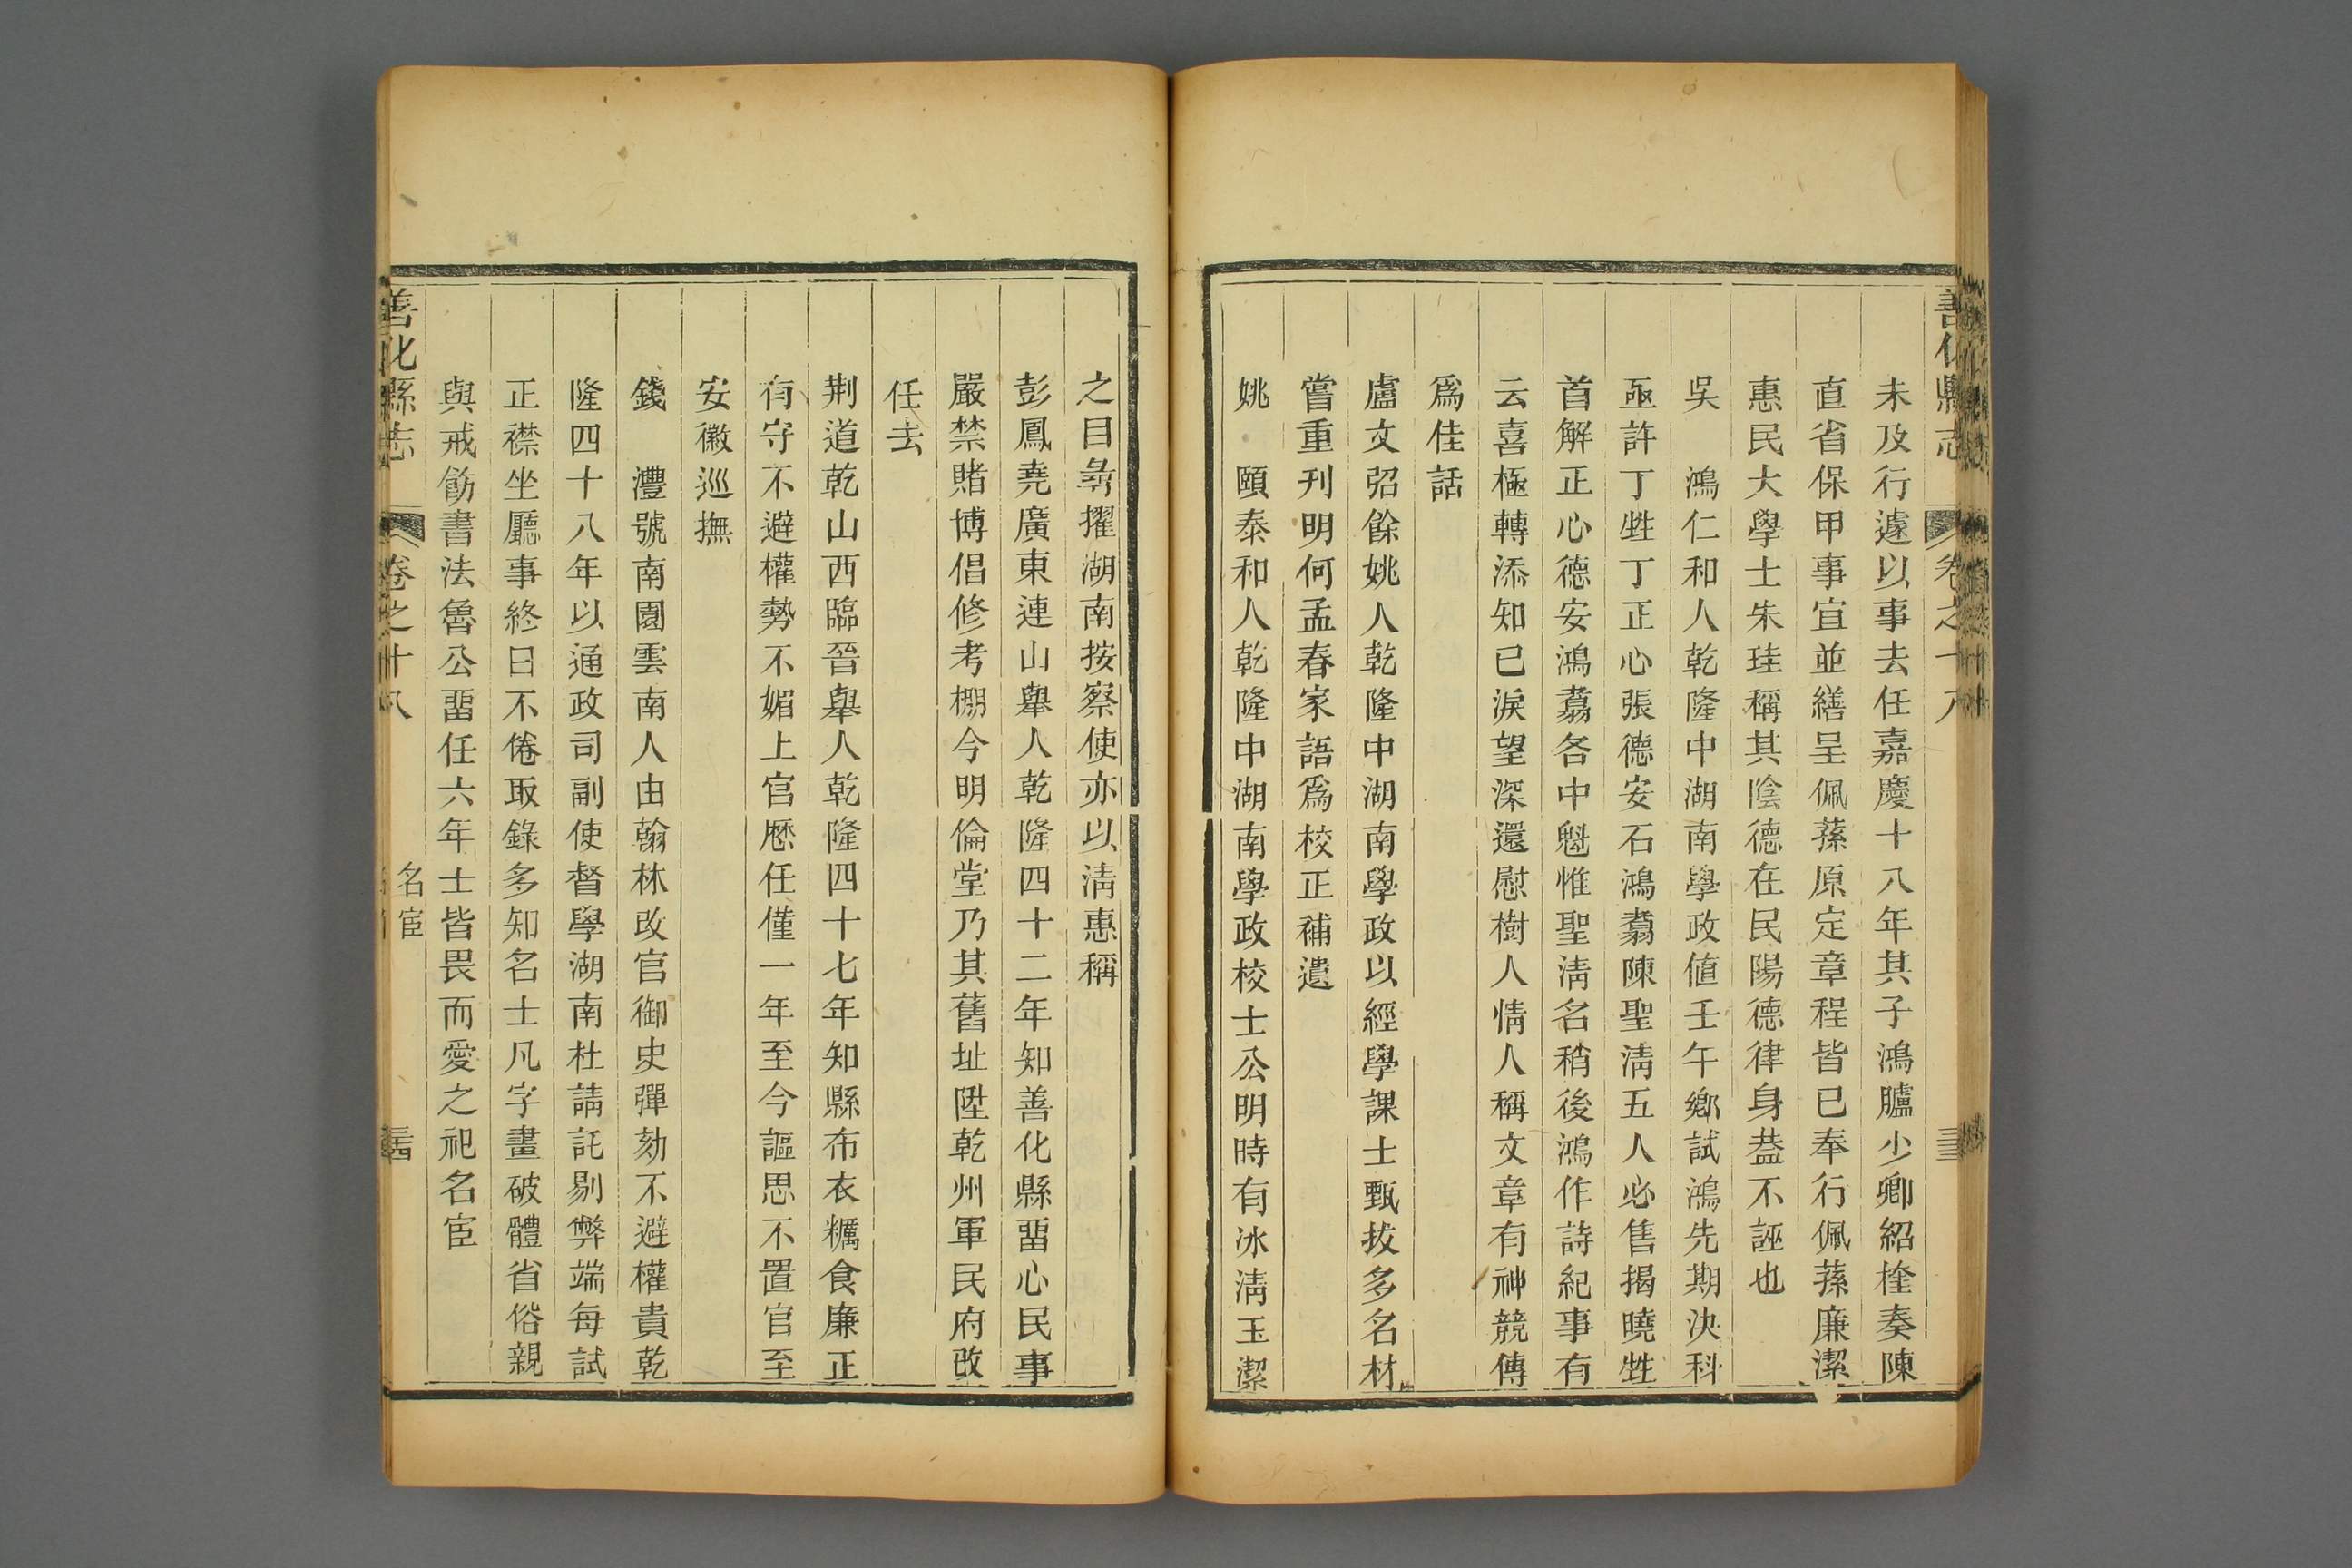 善化縣志 卷之十八
未及行遽以事去任嘉慶十八年其子鴻臚少卿紹㭎奏陳
直省保甲事宜並繕呈佩蓀原定章程皆已奉行佩蓀廉潔
惠民大學士朱珪稱其陰德在民陽德律身葢不誣也
吳 鴻仁和人乾隆中湖南學政値壬午鄉試鴻先期決科
亟許丁甡丁正心張德安石鴻翥陳聖淸五人必售揭曉甡
首解正心德安鴻翥各中魁惟聖淸名稍後鴻作詩紀事有
云喜極轉添知已淚望深還慰樹人情人稱文章有神競傳
爲佳話
盧文弨餘姚人乾隆中湖南學政以經學課士甄拔多名材
嘗重刊明何孟春家語爲校正補遺
姚 頤泰和人乾隆中湖南學政校士公明時有冰淸玉潔
之目尋擢湖南按察使亦以淸惠稱
彭鳳堯廣東連山舉人乾隆四十二年知善化縣畱心民事
嚴禁賭博倡修考棚今明倫堂乃其舊址陞乾州軍民府改
任去
荆道乾山西臨晉舉人乾隆四十七年知縣布衣糲食廉正
有守不避權勢不媚上官歷任僅一年至今謳思不置官至
安徽巡撫
錢 灃號南園雲南人由翰林改官御史彈劾不避權貴乾
隆四十八年以通政司副使督學湖南杜請託剔弊端每試
正襟坐廳事終日不倦取錄多知名士凡字畫破體省俗親
與戒飭書法魯公畱任六年士皆畏而愛之祀名宦
善化縣志 卷之十八 名宦